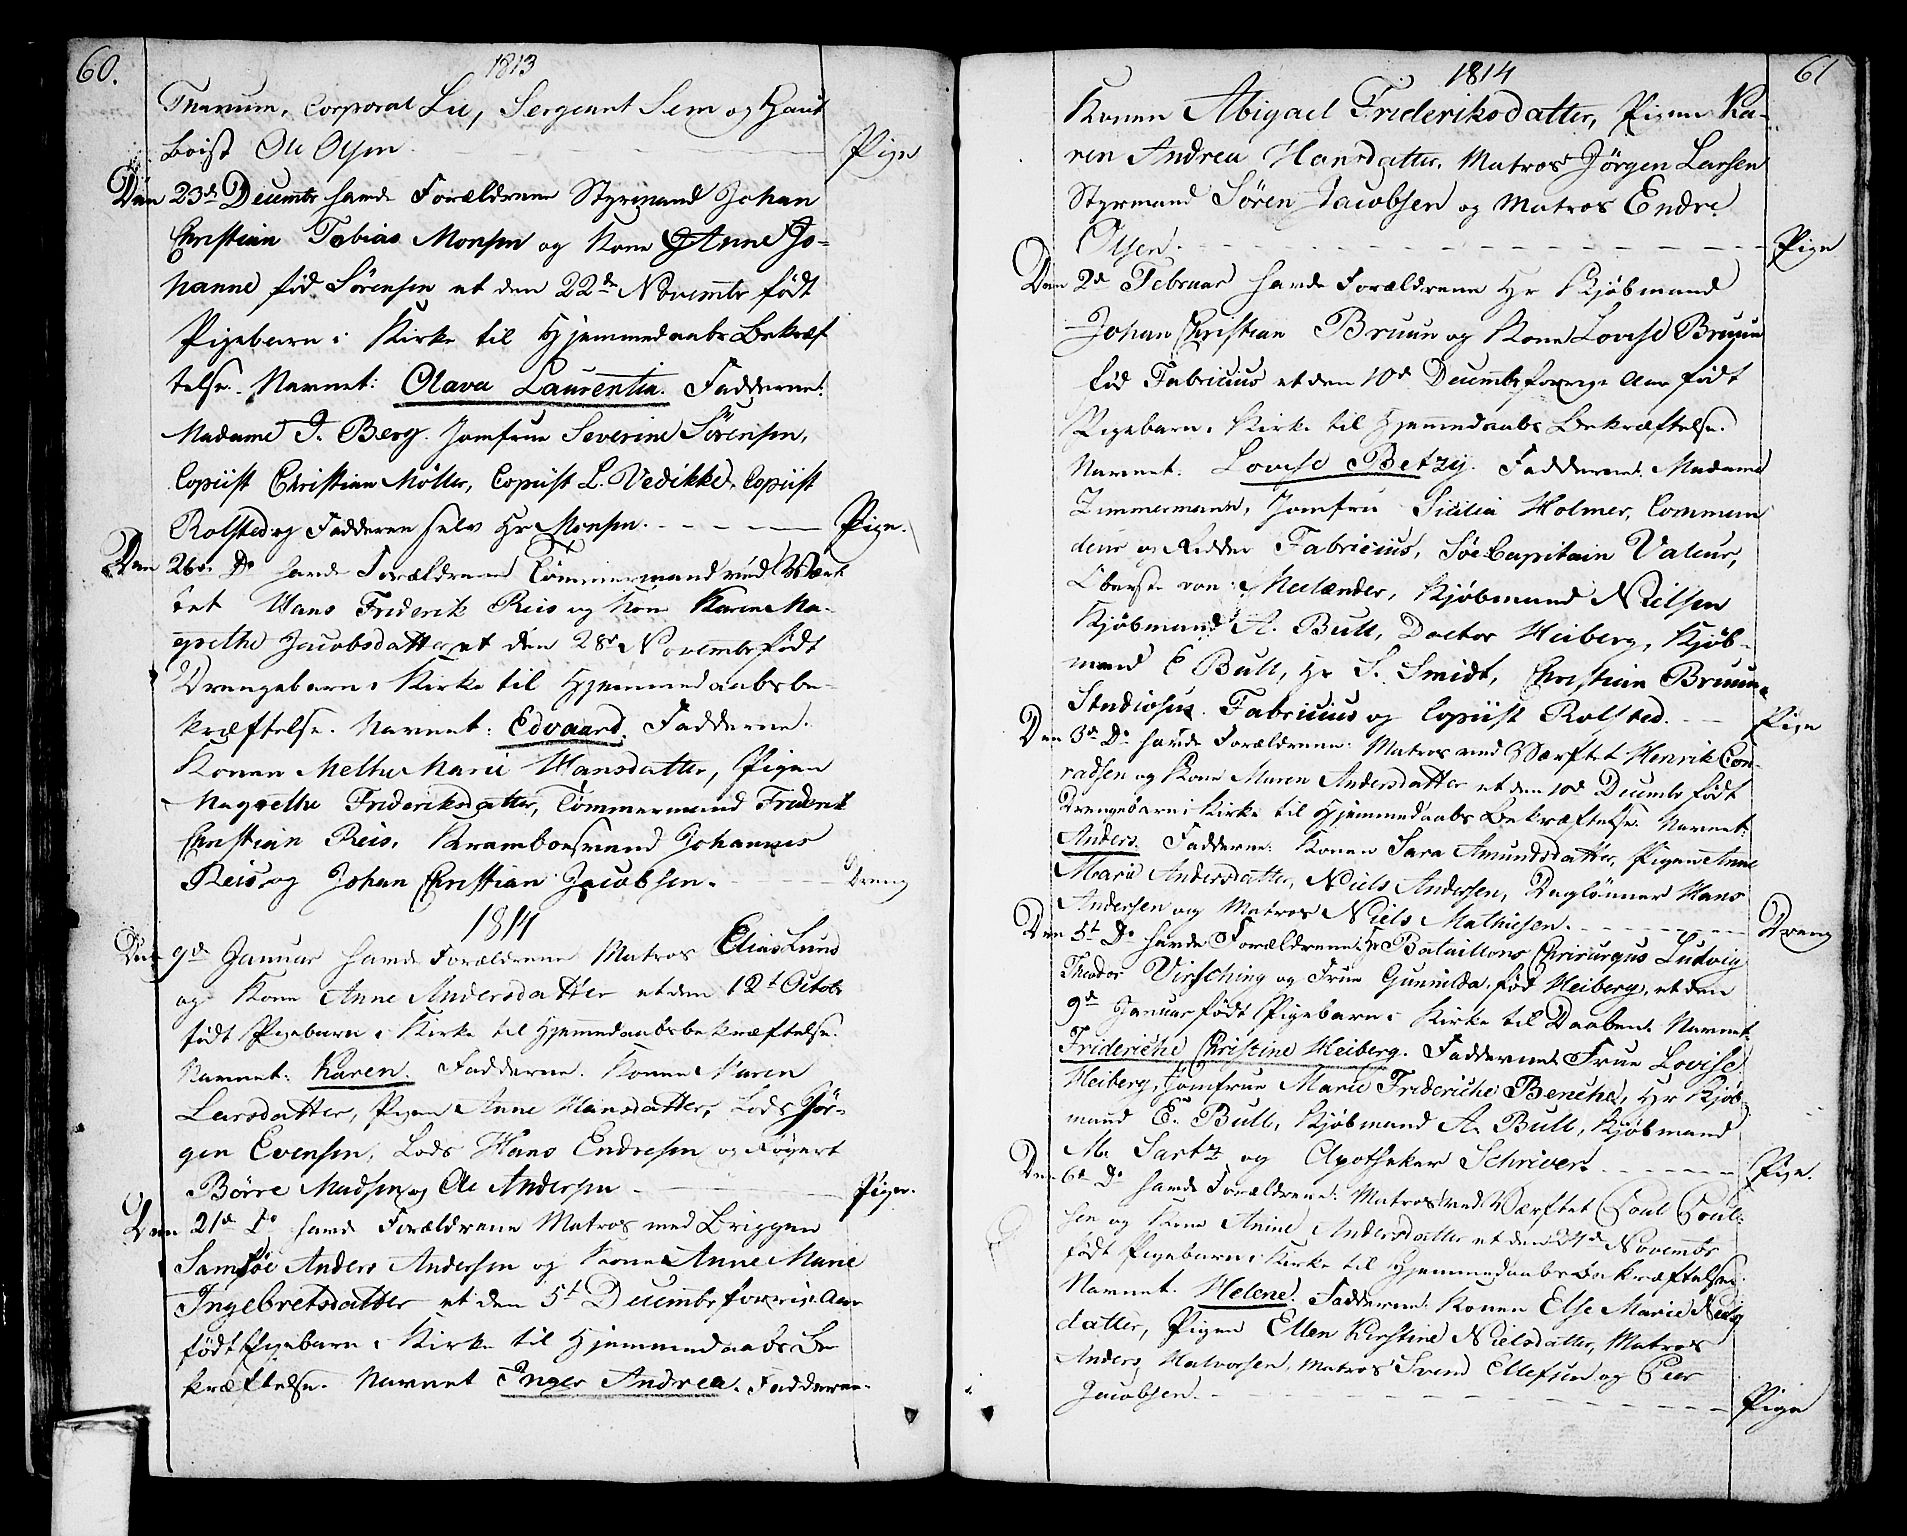 60.
1813
Marum, Corporal Lie, Sergeant Sem og Haut
boist Ole Olsen. Pige
Den 23d Decembr havde Forældrene Styrmand Johan
Christian Tobias Monsen og Kone Anne Jo-
hanne fød Sörensen et den 22de Novembr født
Pigebarn i Kirke til Hjemmedaabs Bekræf
telse. Navnet: Olava Laurentia. Fadderne:
Madame J. Berg. Jomfrue Severine Sörensen,
Copiist Christian Möller, Copiist L. Vedikke, Copiist
Rolsted og Fadderen selv Hr Monsen. Pige.
Den 26de Do havde Forældrene Tömmermand ved Værf
tet Hans Friderik Reis og Kone Karen Ma-
grethe Jacobsdatter et den 28de Novembr født
Drengebarn i Kirke til Hjemmedaabsbe-
kræftelse. Navnet: Edvaard. Fadderne.
Konen Methe Marie Hansdatter, Pigen
Magrethe Frideriksdatter, Tömmermand Friderik
Christian Reis, Kramboesvend Johannes
Reis og Johan Christian Jacobsen. Dreng
1814
Den 9de Januar havde Forældrene Matros Elias Lund
og Kone Anne Andersdatter et den 12t Octobr
født Pigebarn i Kirke til Hjemedaabsbekræftelse.
Navnet: Karen. Fadderne. Konen Maren
Larsdatter, Pigen Anne Hansdatter, Lods Jör-
gen Evensen, Lods Hans Endresen og
Börre Madsen og Ole Andersen Pige.
Den 21de Do havde Forældrene Matros med Briggen
Samsöe Anders Andersen og Kone Anne Marie
Ingebretsdatter et den 5t Decembr forrige Aar
født Pigebarn i Kirke til Hjemmedaabs Be
kræftelse. Navnet Inger Andrea. Fadderne.
61
1814
Konen Abigael Frideriksdatter, Pigen Ka-
ren Andrea Hansdatter. Matros Jørgen Larsen
Styrmand Sören Jacobsen og Matros Endre
Olsen. Pige
Den 2d Februar havde Forældrene Hr Kjøbmand
Johan Christian Bruun og Kone Lovise Bruun
fød Fabricius et den 10d Decembr forrige Aar født
Pigebarn i Kirke til Hjemmedaabs Bekræftelse.
Navnet. Lovise Betzy. Fadderne. Madame
Zimmermann, Jomfru Sicilia Holmer, Commen
deur og Ridder Fabricius, Søe Capitain Valeur,
Oberste von Meelænder, Kjøbmand Nielsen
Kjöbmand A. Bull, Doctor Heiberg, Kjöb-
mand E Bull, Hr S. Smidt, Christian Bruun
Studiosus Fabricius og Copiist Rolsted. Pige
Den 3d Do havde Forældrene: Matros ved Værftet Henrik Con-
radsen og Kone Maren Andersdatter et den 10d Decembr født
Drengebarn i Kirke til Hjemmedaabs Bekræftelse. Navnet:
Anders. Fadderne: Konen Sara Amundsdatter, Pigen Anne
Marie Andersdatter, Niels Andersen, Daglönner Hans
Andersen og Matros Niels Mathiesen. Dreng
Den 5t Do havde Forældrene: Hr Bataillons Chirurgus Ludvig
Theodor Virsching og Frue Gunnilda fød Heiberg, et den
9de Januar født Pigebarn i Kirke til Daaben. Navnet.
Frideriche Christine Heiberg. Fadderne Frue Lovise
Heiberg, Jomfrue Marie Frideriche Benche, Hr Kjøb-
mand E. Bull, Kjøbmand A. Bull, Kjøbmand
M. Sartz og Apotheker Schriver. Pige.
Den 6t Do havde Forældrene: Matros ved Værftet Poul Poul-
sen og Kone Anine Andersdatter et den 24d Novembr
født Pigebarn i Kirke til Hjemmedaabs Bekræftelse.
Navnet. Helene. Fadderne. Konen Else Marie Niels
datter, Pigen Ellen Kirstine Nielsdatter, Matros
Anders Halvorsen, Matros Svend Ellefsen og Peer
Jacobsen. Pige